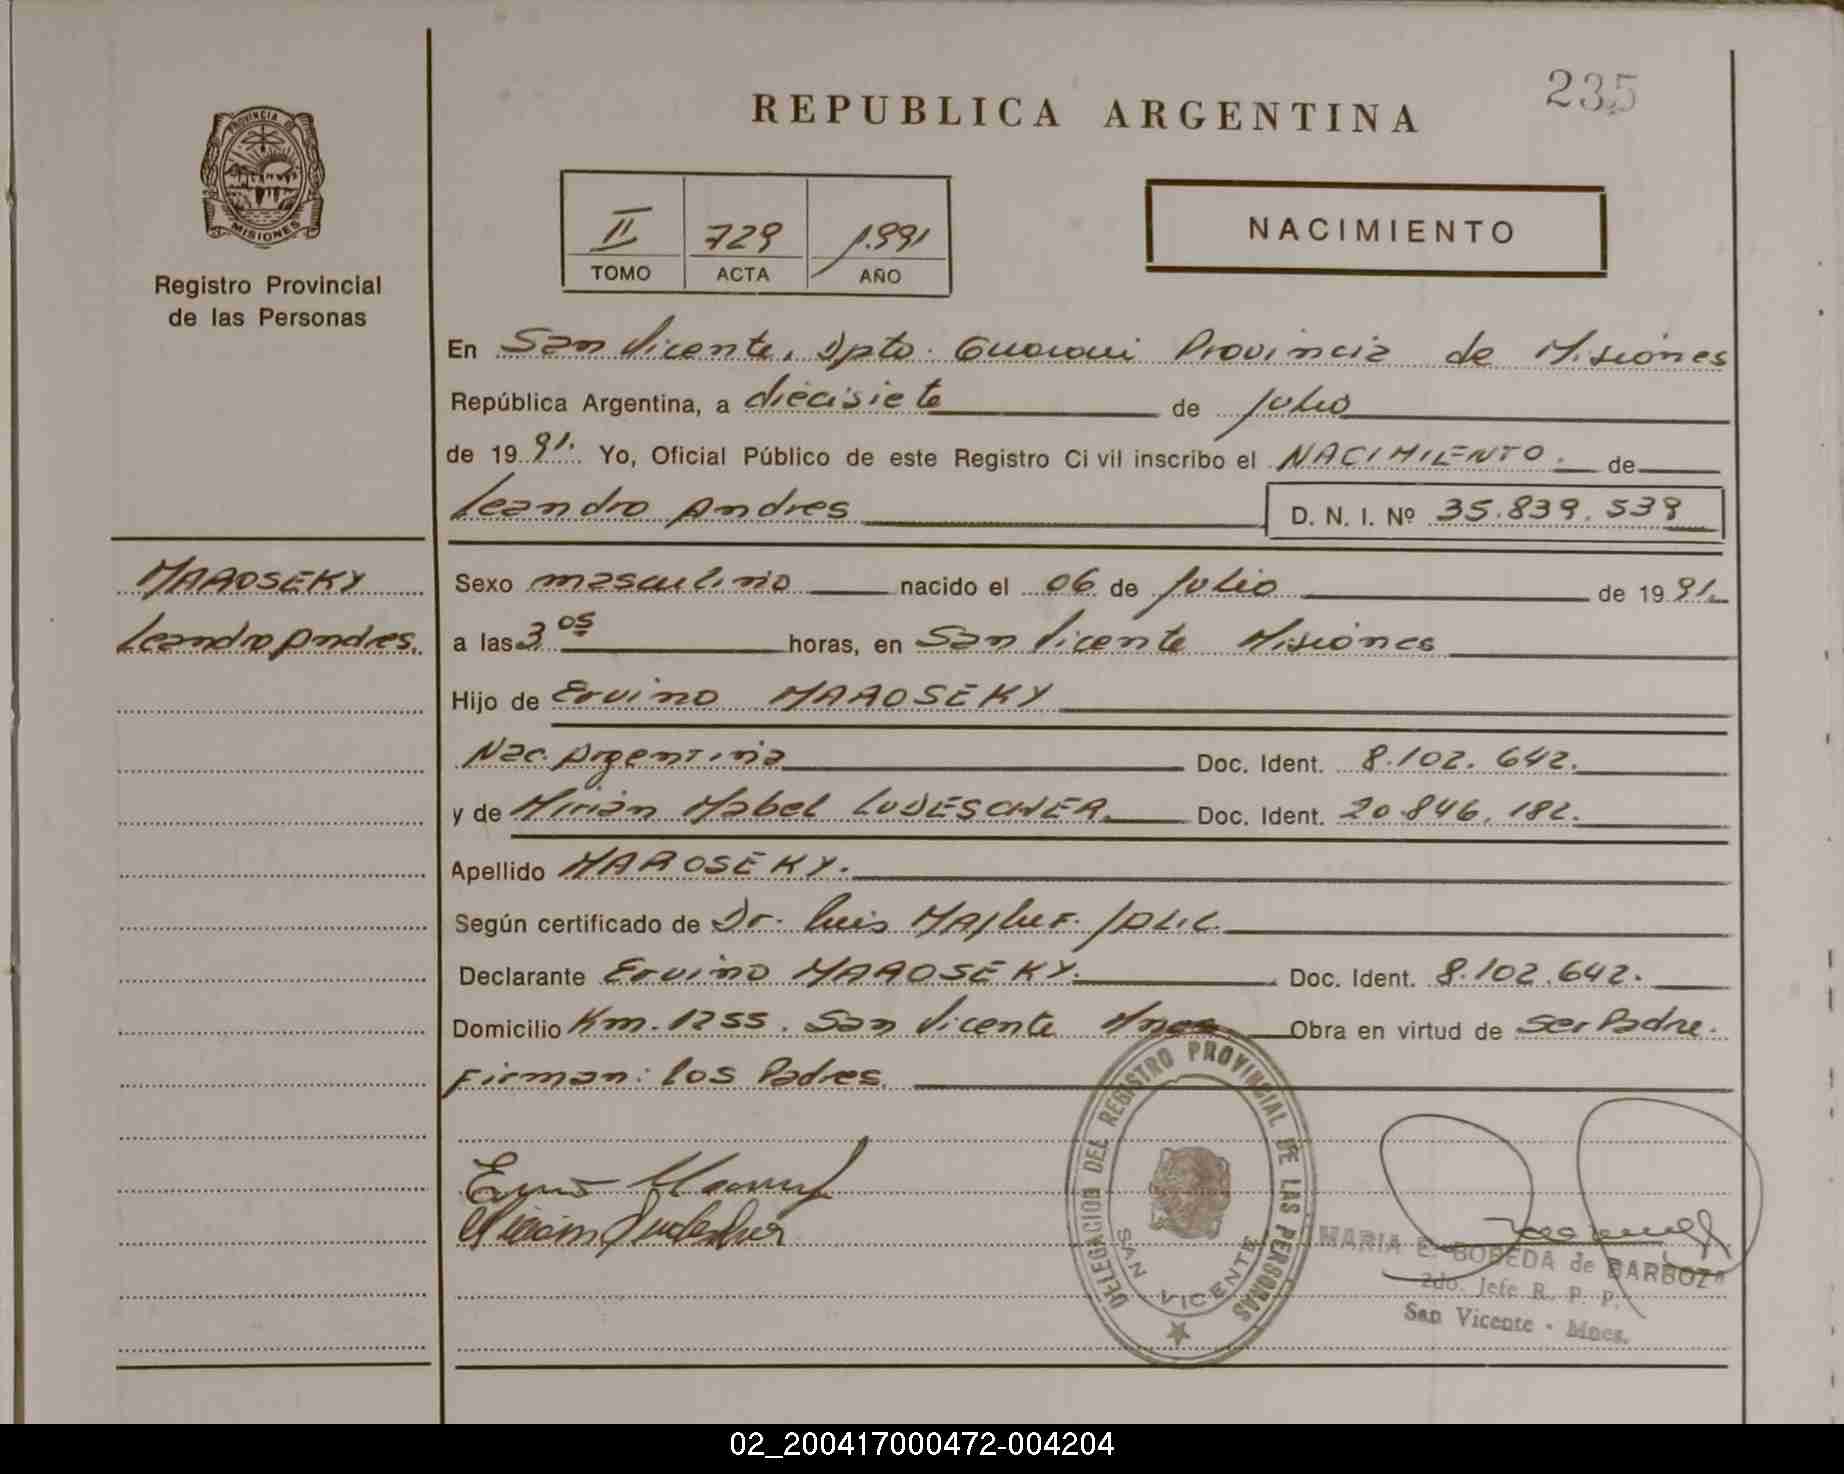 235
REPUBLICA ARGENTINA
PROVINCIA DE
MISIONES
Registro Provincial
de las Personas
II 729 1.991
TOMO ACTA AÑO
NACIMIENTO
En San Vicente, Dpto. Guarani Provincia de Misiones
República Argentina, a diecisiete de Julio
de 19 91. Yo, Oficial Público de este Registro Civil inscribo el NACIMIENTO. de
Leandro Andres D. N. I. Nº 35.839.539
MAROSEKY
Leandro Andres.
Sexo masculino nacido el 06 de Julio de 19 91.
a las 3 05 horas, en San Vicente Misiones
Hijo de Ervino MAROSEKY
Nac. Argentina Doc. Ident. 8.102.642.
y de Mirian Mabel LUDESCHER. Doc. Ident. 20.846.182.
Apellido MAROSEKY.
Según certificado de Dr. Luis
Declarante Ervino MAROSEKY. Doc. Ident. 8.102.642.
Domicilio Km. 1255. San Vicente Mnes Obra en virtud de ser Padre.
Firman: los Padres.
DELEGACION DEL REGISTRO PROVINCIAL DE LAS PERSONAS
SAN VICENTE
MARIA E. BOBEDA de BARBOZA
2do. Jefe R. P. P.
San Vicente - Mnes.
02_200417000472-004204